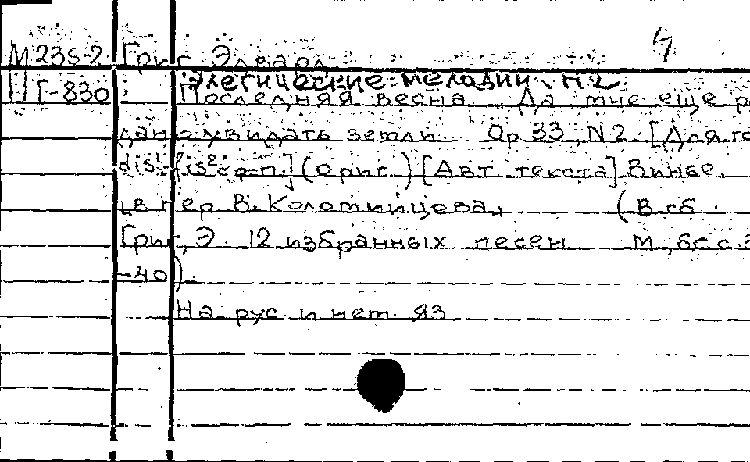 4
М 235-2 Григ, Эдвард
Элегические мелодии. N2
Г-830 Последняя весна. Да мне еще
дано увидать земли Op 33, N 2. [Для го
dis¹-fis² с ф-п.] (ориг.) [Авт текста] Винье,
в пер В. Коломийцева. (В сб.
Григ, Э. 12 избранных песен М, бг с 3
-40).
На рус и нем яз